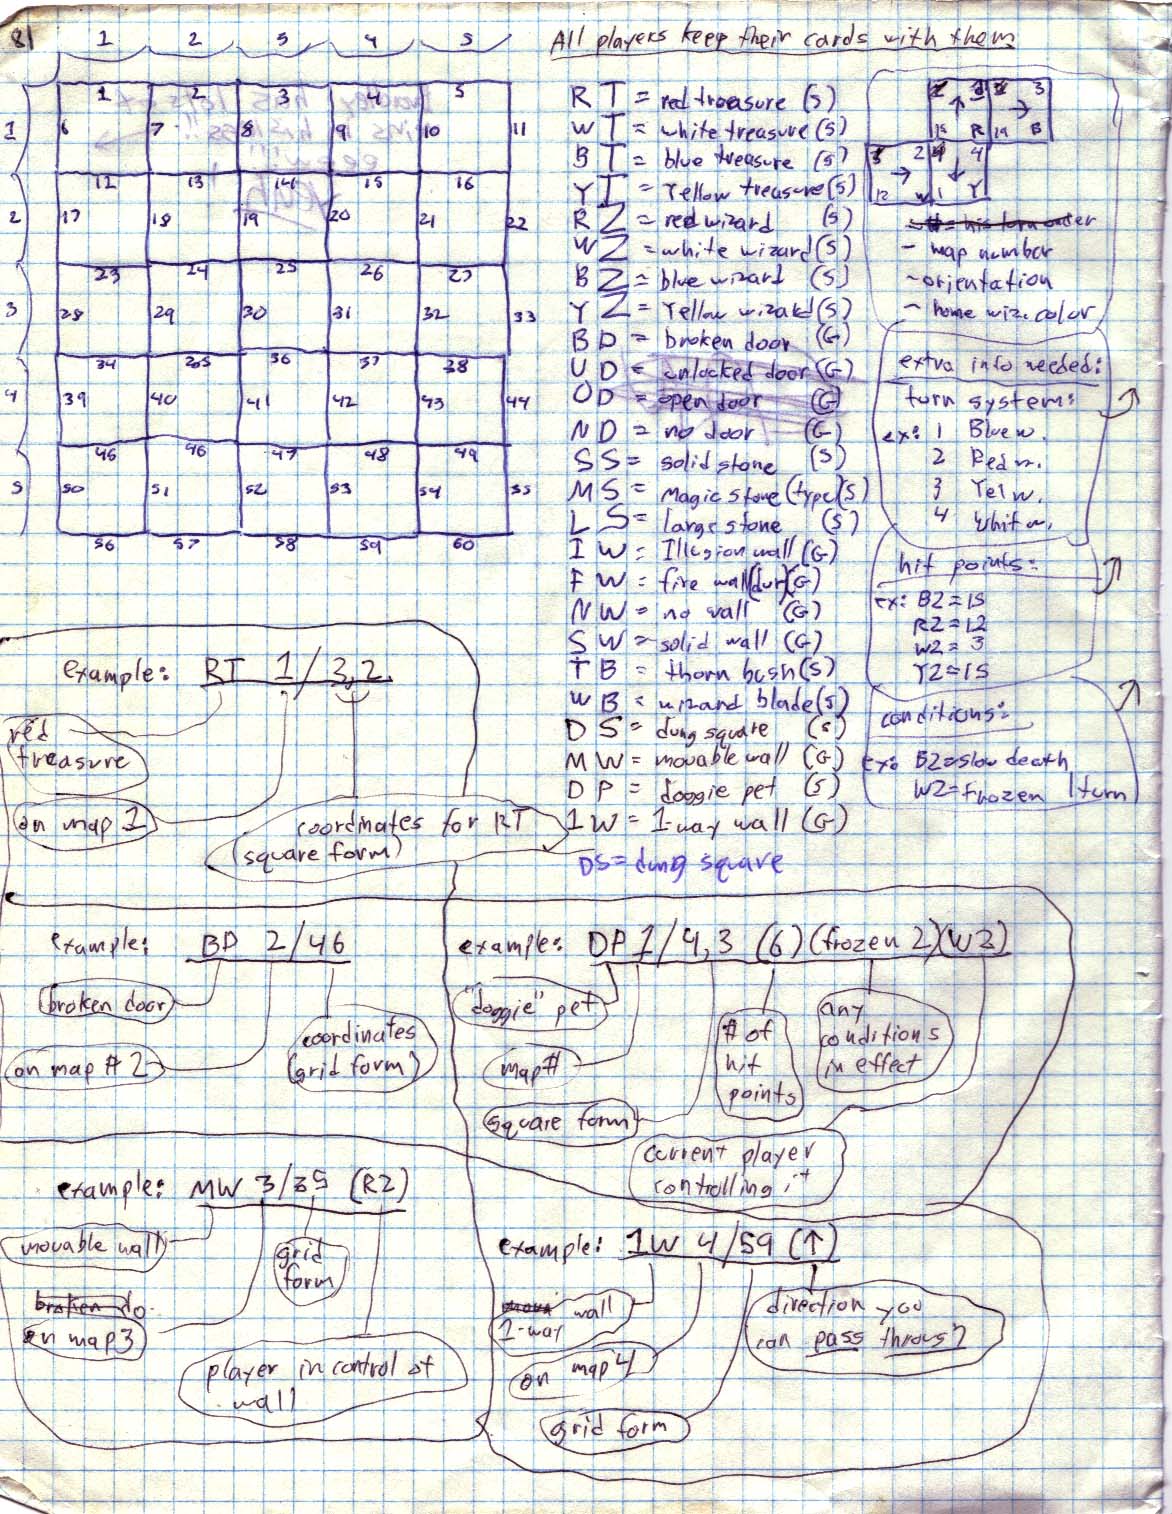 81
1 2 3 4 5
All players keep their cards with them
1 2 3 4 5
1 6 7 8 9 10 11
12 13 14 15 16
2 17 18 19 20 21 22
23 24 25 26 27
3 28 29 30 31 32 33
34 35 36 37 38
4 39 40 41 42 43 44
45 46 47 48 49
5 50 51 52 53 54 55
56 57 58 59 60
RT = red treasure (S)
WT = white treasure (S)
BT = blue treasure (S)
YT = Yellow treasure (S)
RZ = red wizard (S)
WZ = white wizard (S)
BZ = blue wizard (S)
YZ = Yellow wizard (S)
BD = broken door (G)
UD = unlocked door (G)
OD = open door (G)
ND = no door (G)
SS = solid stone (S)
MS = Magic stone (type) (S)
LS = large stone (S)
IW = Illusion wall (G)
FW = fire wall (dur) (G)
NW = no wall (G)
SW = solid wall (G)
TB = thorn bush (S)
WB = wizard blade (S)
DS = dung square (S)
MW = movable wall (G)
DP = doggie pet (S)
1W = 1-way wall (G)
DS = dung square
3
15 R 19 B
2 4
12 W 1 Y
- map number
- orientation
- home wiz. color
extra info needed:
turn system:
ex: 1 Blue w.
2 Red w.
3 Yel w.
4 Whit w.
hit points:
ex: BZ = 15
RZ = 12
WZ = 3
YZ = 15
conditions:
ex: BZ = slow death
WZ = frozen 1 turn
example: RT 1/3,2
red
treasure
on map 1
coordinates for RT
(square form)
example: BD 2/46
broken door
on map # 2
coordinates
(grid form)
example: DP 1/4,3 (6) (frozen 2) (WZ)
"doggie" pet
map #
square form
# of
hit
points
any
conditions
in effect
current player
controlling it
example: MW 3/35 (RZ)
movable wall
grid
form
broken do
on map 3
player in control of
wall
example: 1W 4/59 (↑)
wall
1-way
on map 4
grid form
direction you
can pass through